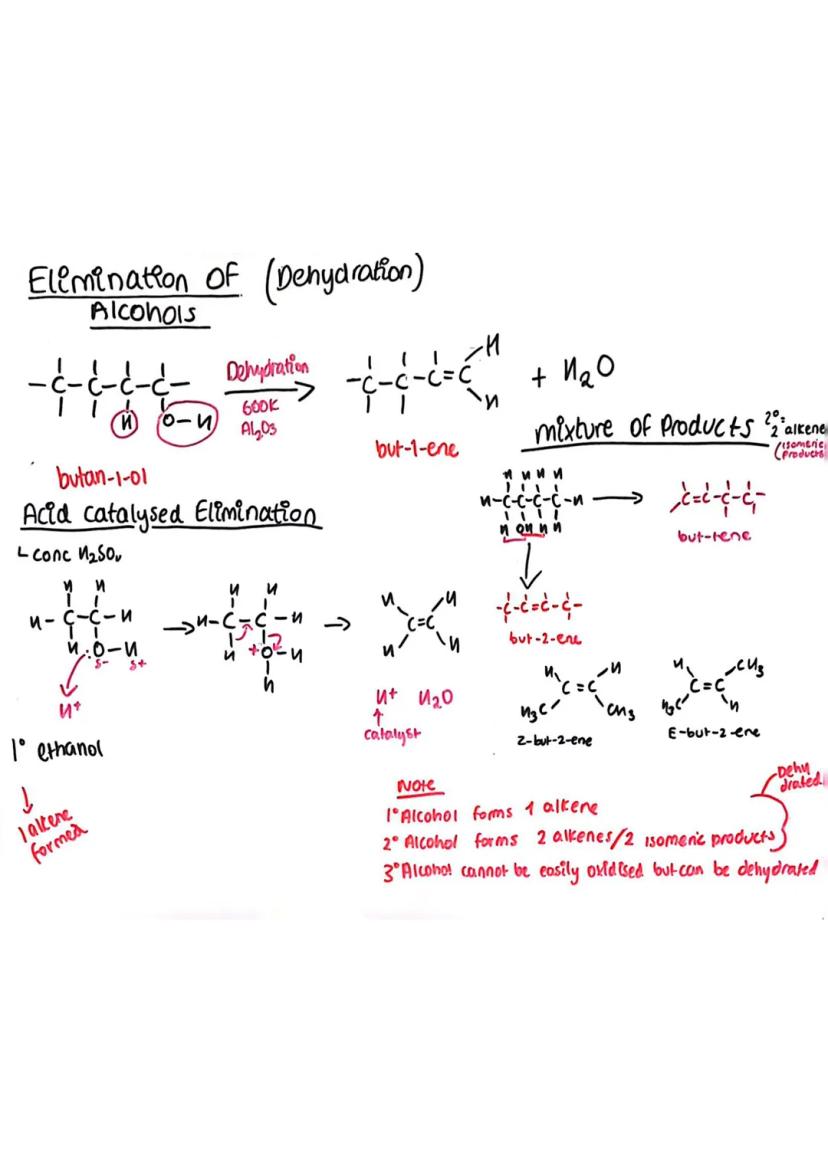 Elimination OF (Dehydration)
Alcohols
-C-C-C-C-
H O-H
Dehydration
600K
Al2O3
-C-C-C=C
H
H
+ H2O
butan-1-ol
but-1-ene
mixture of Products 2°= 2 alkene
(isomeric Products
H H H H
H-C-C-C-C-H
H OH H H
C=C-C-C-
but-1ene
-C-C=C-C-
but-2-ene
Acid catalysed Elimination
conc H2SO4
H H
H-C-C-H
H :O-H
δ- δ+
H+
H H
H-C-C-H
H +O-H
H
H H
C=C
H H
H+ H2O
catalyst
1° ethanol
1 alkene
formed
H H
C=C
H3C CH3
Z-but-2-ene
H CH3
C=C
H3C H
E-but-2-ene
Note
1° Alcohol forms 1 alkene
2° Alcohol forms 2 alkenes/2 isomeric products
Dehy
drated
3° Alcohol cannot be easily oxidised but can be dehydrated